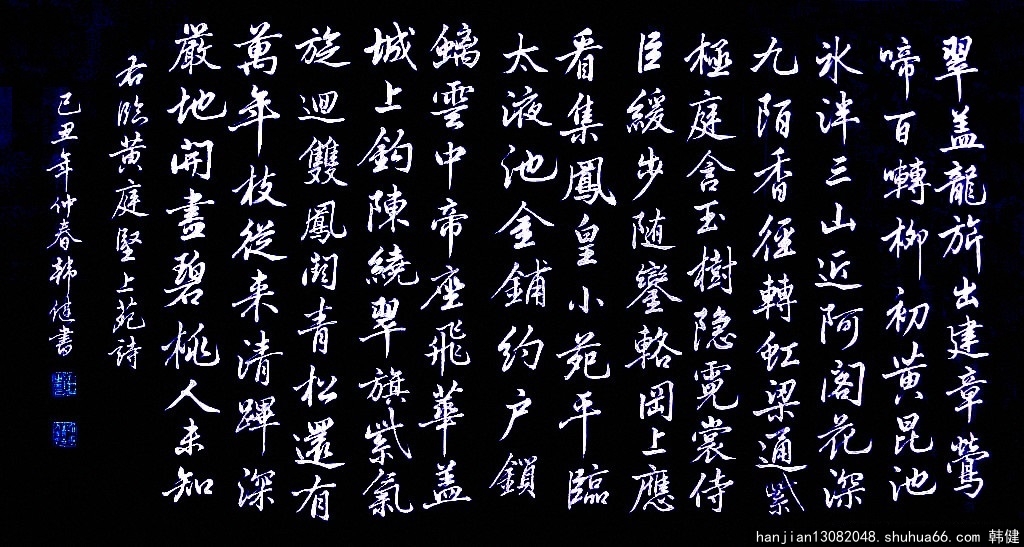 翠盖龍旂出建章鶯
啼百囀柳初黄昆池
氷泮三山近阿閣花深
九陌香徑轉虹梁通紫
極庭含玉樹隐霓裳侍
臣緩步随鑾輅岡上應
看集鳳皇小苑平臨
太液池金鋪约户鎖
螭雲中帝座飛華盖
城上鈎陳繞翠旗紫氣
旋迴雙鳳闕青松還有
萬年枝從来清蹕深
嚴地開盡碧桃人未知
右临黄庭堅上苑詩
己丑年仲春韩健書
hanjian13082048.shuhua66.com 韩健